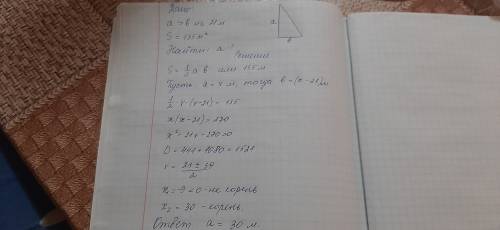 Дано:
a > b на 21 м
S = 135 м²
Найти: a - ?
Решение
S = 1/2 a b или 135 м
Пусть a = x м, тогда b = (x - 21) м
1/2 · x · (x - 21) = 135
x(x - 21) = 270
x² - 21x - 270 = 0
D = 441 + 1080 = 1521
x = 21 ± 39 / 2
x₁ = -9 < 0 - не корень
x₂ = 30 - корень.
Ответ a = 30 м.
a
b